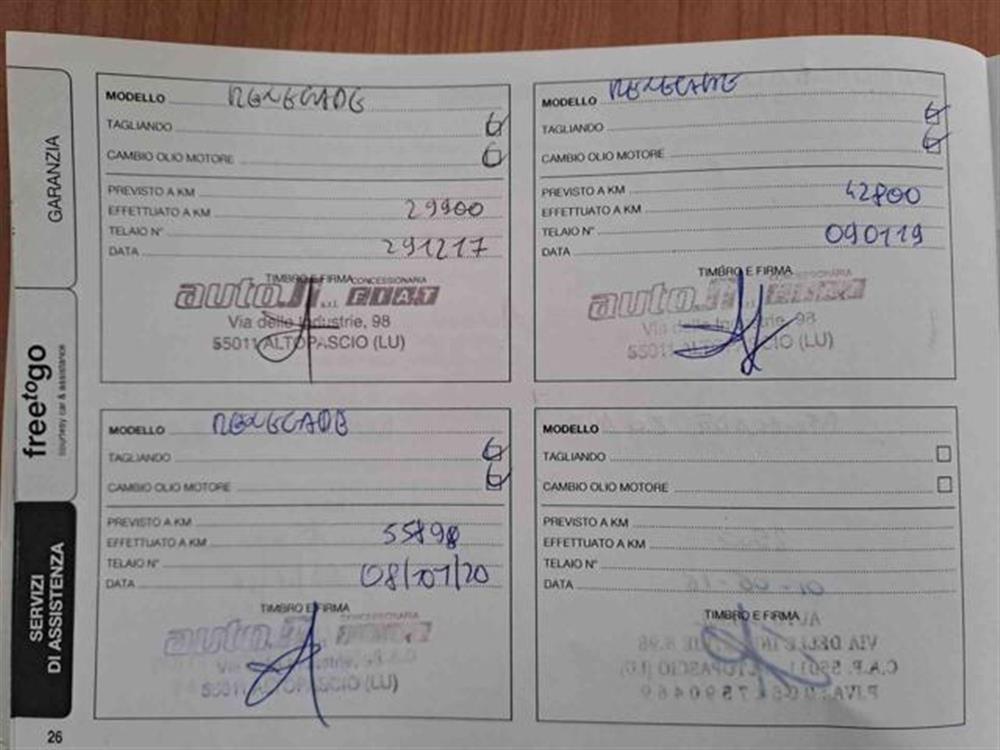 GARANZIA
freetogo
courtesy car & assistance
SERVIZI
DI ASSISTENZA
26
MODELLO RENEGADE
TAGLIANDO
CAMBIO OLIO MOTORE
PREVISTO A KM
EFFETTUATO A KM 29900
TELAIO N°
DATA 291217
TIMBRO E FIRMA
auto.it s.r.l. CONCESSIONARIA FIAT
Via delle Industrie, 98
55011 ALTOPASCIO (LU)
MODELLO RENEGADE
TAGLIANDO
CAMBIO OLIO MOTORE
PREVISTO A KM
EFFETTUATO A KM 42800
TELAIO N°
DATA 090119
TIMBRO E FIRMA
CONCESSIONARIA
Via delle Industrie, 98
55011 ALTOPASCIO (LU)
MODELLO RENEGADE
TAGLIANDO
CAMBIO OLIO MOTORE
PREVISTO A KM
EFFETTUATO A KM
TELAIO N°
DATA 08/01/20
TIMBRO E FIRMA
CONCESSIONARIA
Via delle Industrie, 98
55011 ALTOPASCIO (LU)
MODELLO
TAGLIANDO
CAMBIO OLIO MOTORE
PREVISTO A KM
EFFETTUATO A KM
TELAIO N°
DATA
TIMBRO E FIRMA